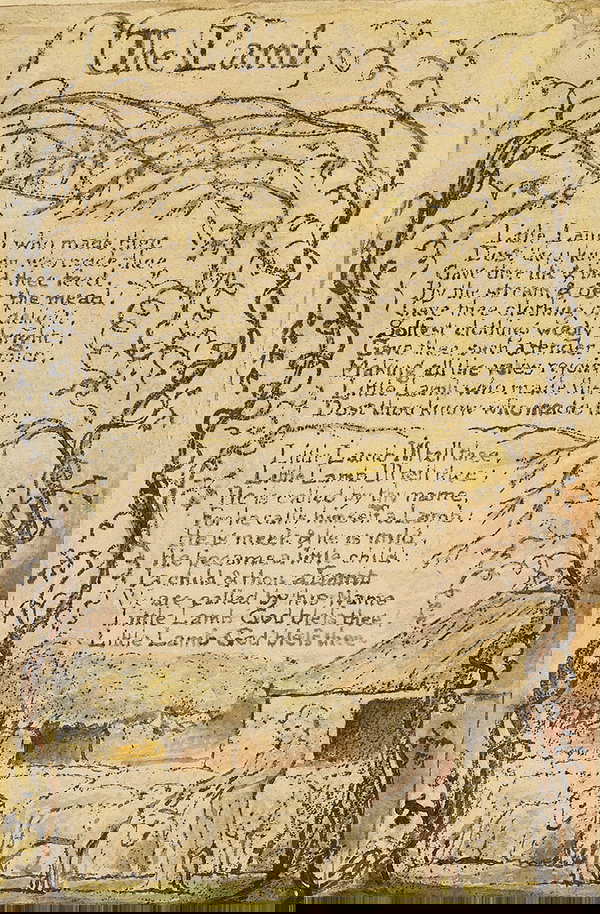 The Lamb
Little Lamb who made thee
Dost thou know who made thee
Gave thee life & bid thee feed.
By the stream & oer the mead;
Gave thee clothing of delight,
Softest clothing wooly bright;
Gave thee such a tender voice,
Making all the vales rejoice:
Little Lamb who made thee
Dost thou know who made thee
Little Lamb I'll tell thee,
Little Lamb I'll tell thee;
He is called by thy name,
For he calls himself a Lamb:
He is meek & he is mild,
He became a little child:
I a child & thou a lamb,
We are called by his name.
Little Lamb God bless thee.
Little Lamb God bless thee.